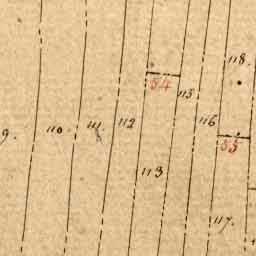 118.
54
115
9.
110.
111.
112
116
55
113
117.